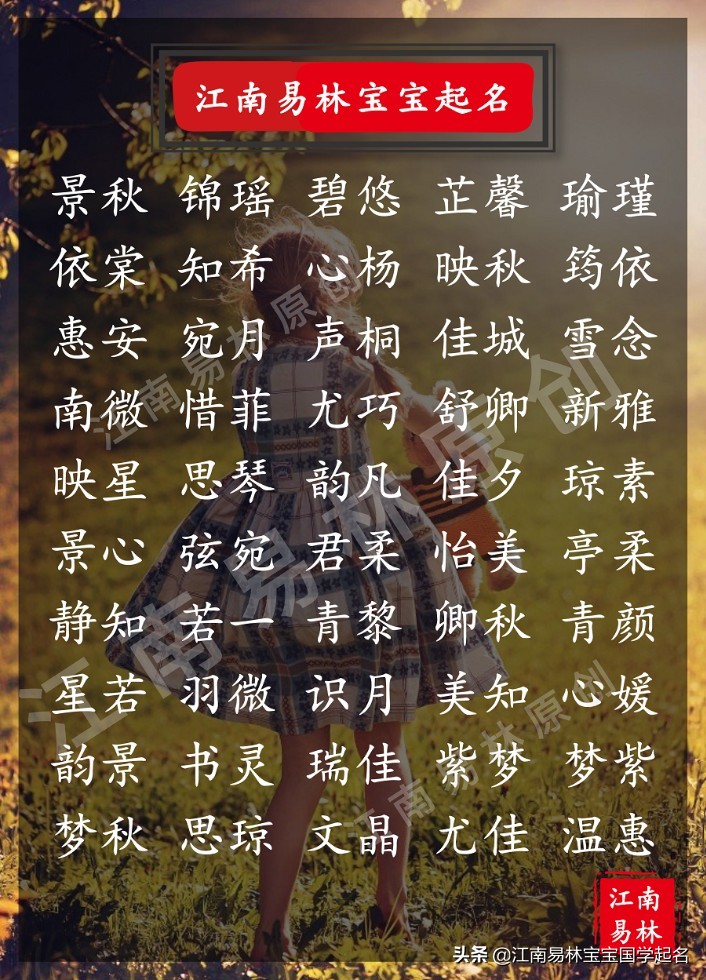 江南易林宝宝起名
景秋 锦瑶 碧悠 芷馨 瑜瑾
依棠 知希 心杨 映秋 筠依
惠安 宛月 声桐 佳城 雪念
南微 惜菲 尤巧 舒卿 新雅
映星 思琴 韵凡 佳夕 琼素
景心 弦宛 君柔 怡美 亭柔
静知 若一 青黎 卿秋 青颜
星若 羽微 识月 美知 心媛
韵景 书灵 瑞佳 紫梦 梦紫
梦秋 思琼 文晶 尤佳 温惠
江南易林原创
江南易林原创
江南易林原创
江南
易林
头条 @江南易林宝宝国学起名